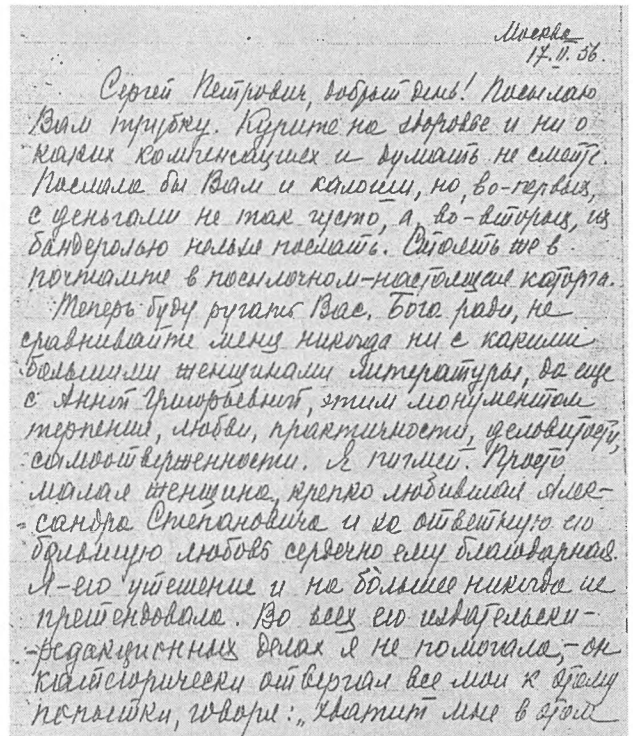 Москва
17.II.56.
Сергей Петрович, добрый день! Посылаю
Вам трубку. Курите на здоровье и ни о
каких компенсациях и думать не смейте.
Послала бы Вам и калоши, но, во-первых,
с деньгами не так густо, а, во-вторых, их
бандеролью нельзя послать. Стоять же в
почтамте в посылочном-настоящая каторга.
Теперь буду ругать Вас. Бога ради, не
сравнивайте меня никогда ни с какими
большими женщинами литературы, да еще
с Анной Григорьевной, этим монументом
терпения, любви, практичности, деловитости,
самоотверженности. Я пигмей. Просто
малая женщина, крепко любившая Алек-
сандра Степановича и за ответную его
большую любовь сердечно ему благодарная.
Я-его утешение и на большее никогда не
претендовала. Во всех его издательски-
-редакционных делах я не помогала,-он
категорически отвергал все мои к этому
попытки, говоря: „хватит мне в этом